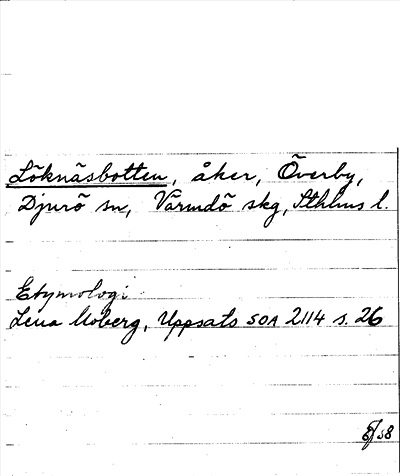 Löknäsbotten, åker, Överby,
Djurö sn, Värmdö skg, Sthlms l.
Etymologi
Lena Moberg, Uppsats SOA 2114 s. 26